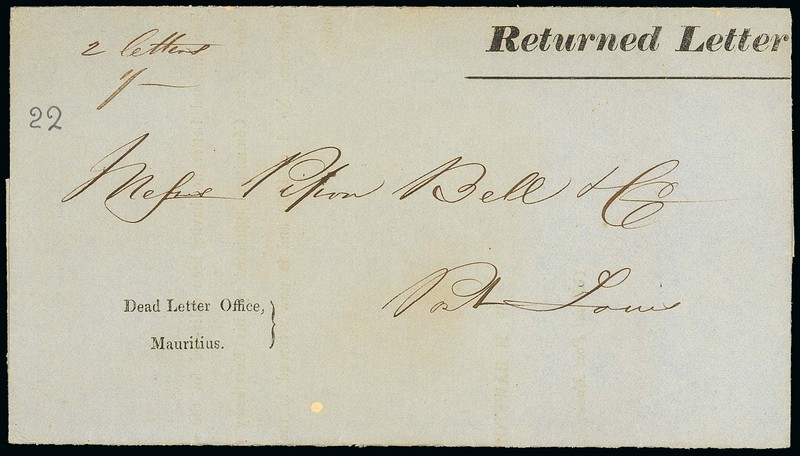 Returned Letter
2 letters
1/-
22
Messrs Pipon Bell & Co
Port Louis
Dead Letter Office,
Mauritius.